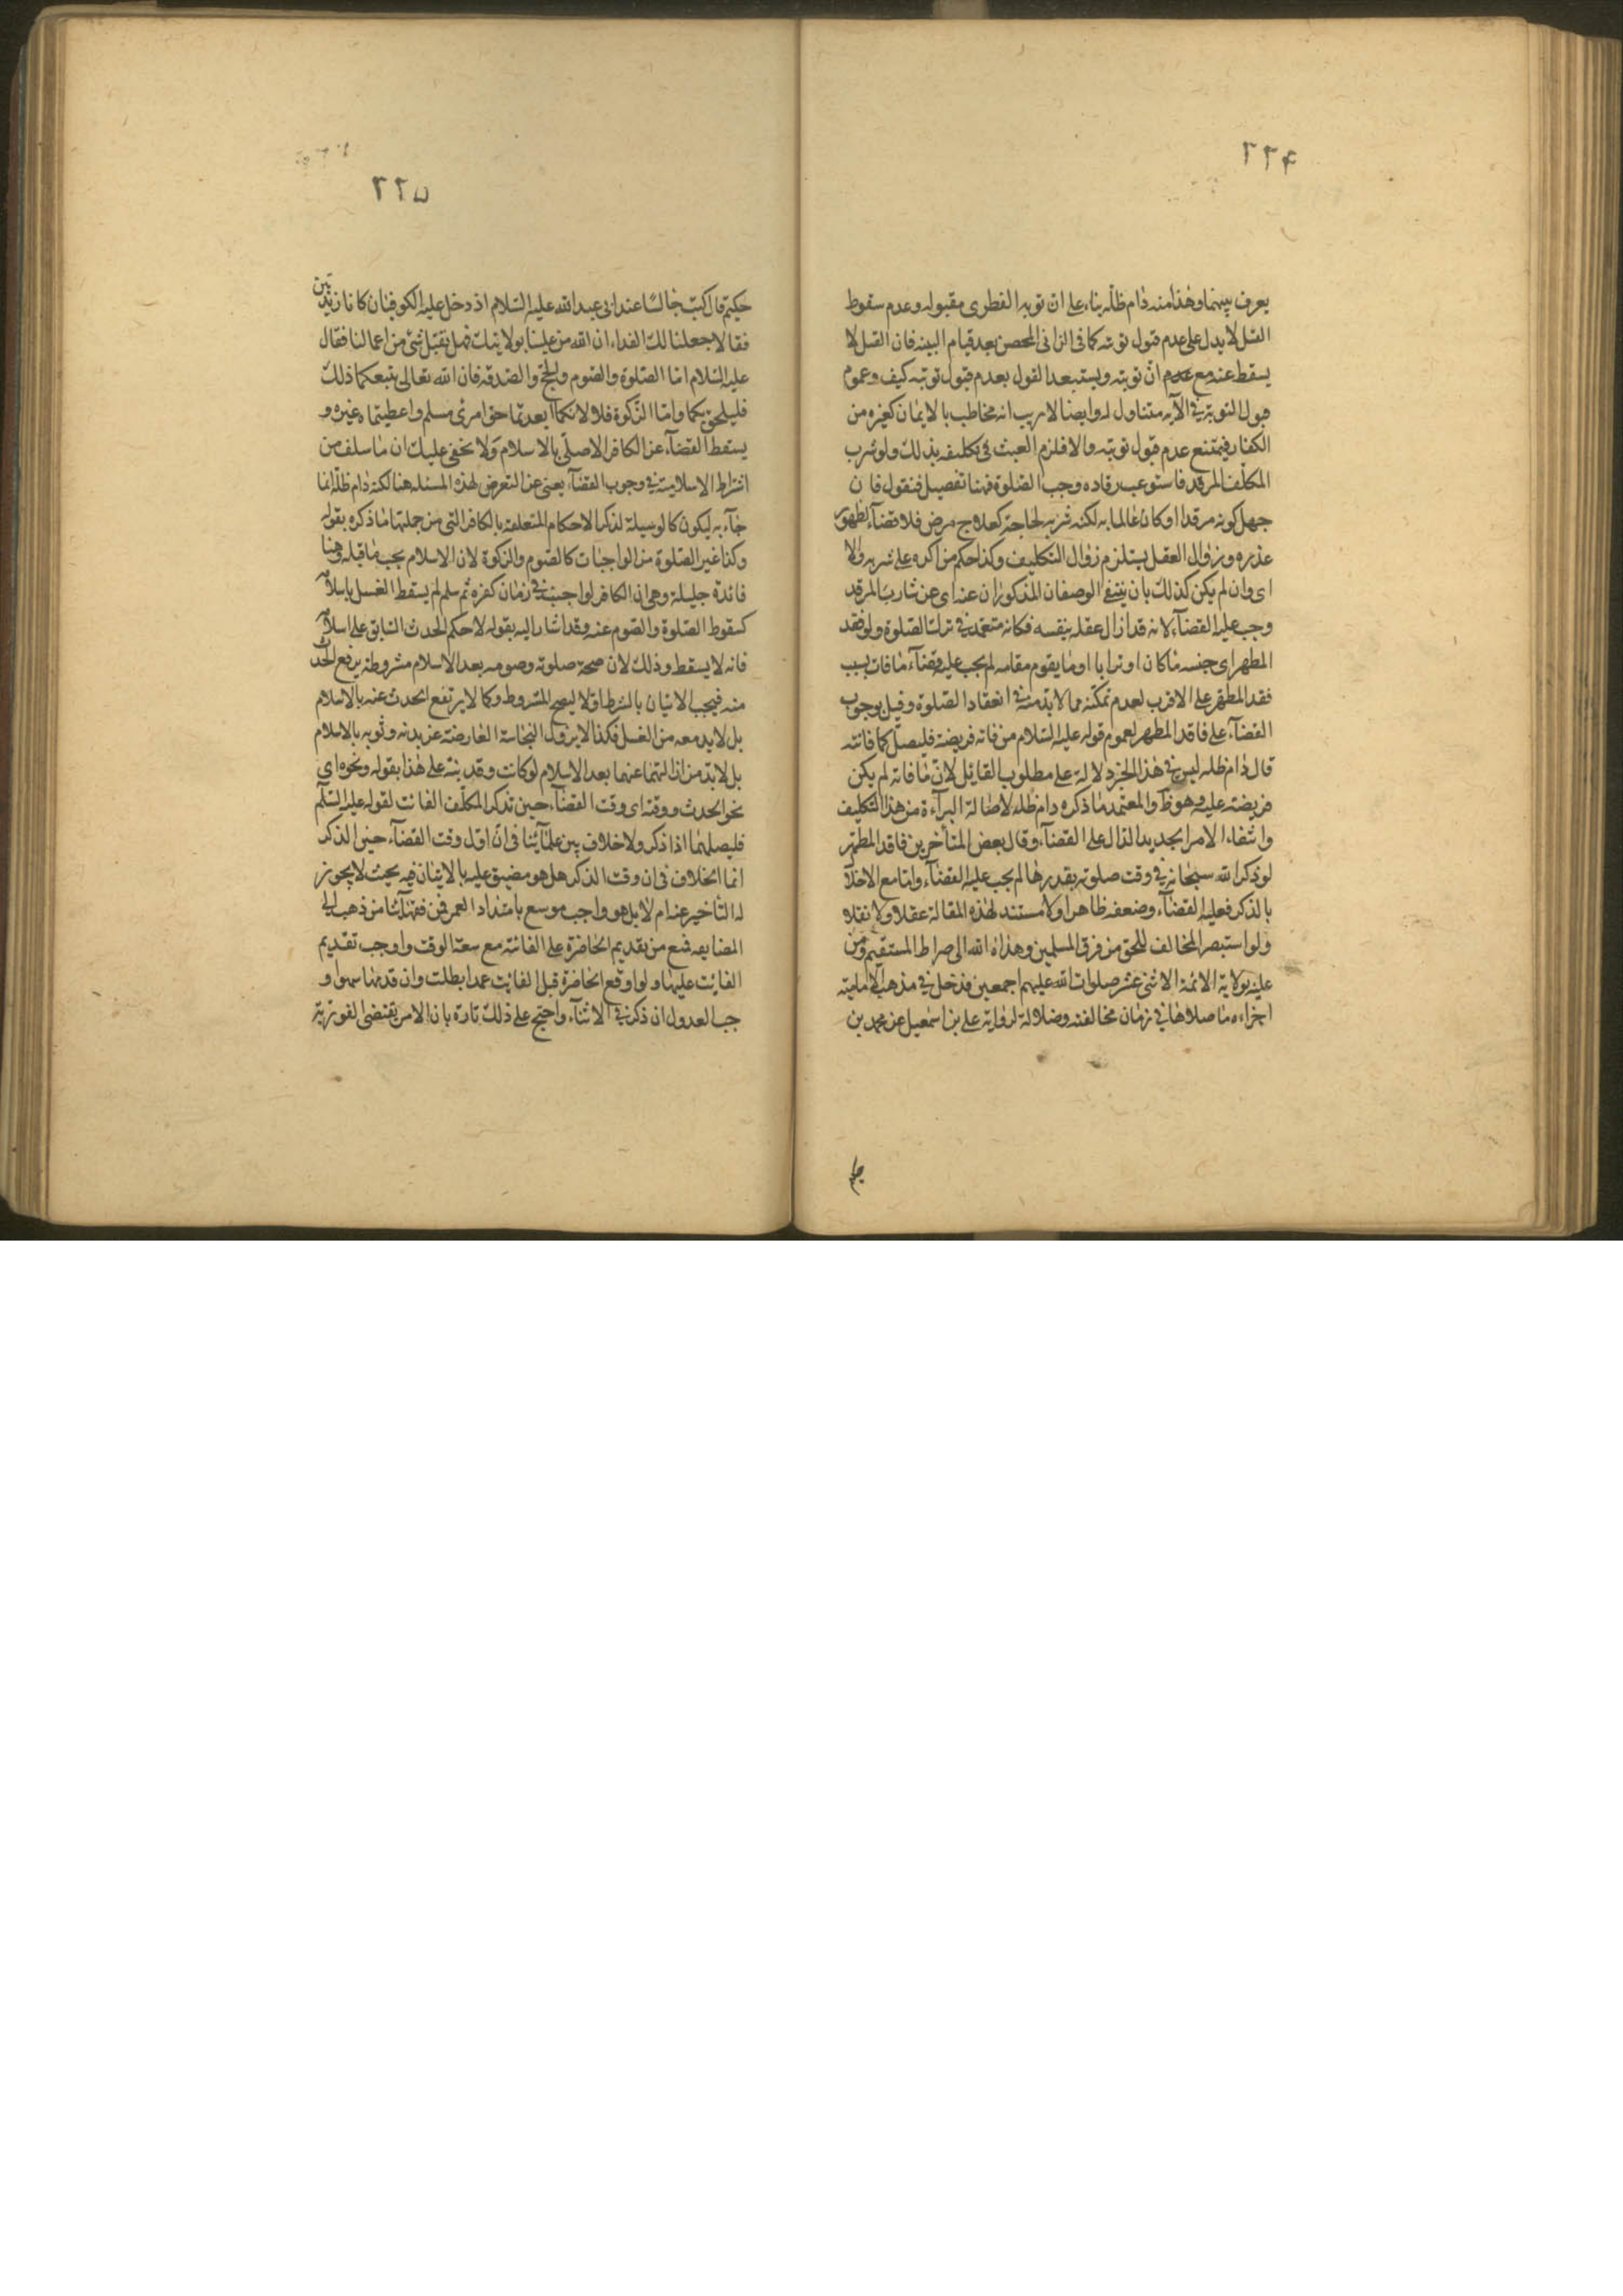 ٢٢٤
يعرف بينهما وهذا منه دام ظله بناء على ان توبه الفطرى مقبوله وعدم سقوط
القتل لا يدل على عدم قبول توبته كما فى الزانى المحصن بعد قيام البينه فان القتل لا
يسقط عنه مع ان توبته ويستبعد القول بعدم قبول توبته كيف وعموم
قبول التوبة فى الآيه متناول له وايضا لا ريب انه مخاطب بالايمان كغيره من
الكفار فيمتنع عدم قبول توبته والا فلزم العبث فى تكليفه بذلك ولو شرب
المكلف المرقد فاستوعب رقاده وجب الصلوة فهنا تفصيل فنقول فان
جهل كونه مرقدا او كان عالما به لكنه شربه لحاجة كعلاج مرض فلا قضآء لظهور
عذره وزوال العقل يستلزم زوال التكليف وكذا حكم من اكره على شربه والا
اى وان لم يكن كذلك بان ينتفى الوصفان المذكوران عنه اى عن شارب المرقد
وجب عليه القضآء لانه قد ازال عقله بنفسه فكانه متعمد فى ترك الصلوة ولو فقد
المطهر اى جنسه ماكان او ترابا او ما يقوم مقامه لم يجب عليه قضآء ما فات بسبب
فقد المطهر على الاقرب لعدم تمكنه مما لابد منه فى انعقاد الصلوة وقيل بوجوب
القضآء على فاقد المطهر لعموم قوله عليه السلام من فاته فريضة فليصل كما فاتته
قال دام ظله ليس فى هذا الخبر دلالة على مطلوب القائل لان ما فاته لم يكن
فريضته عليه وهو ظ والمعتمد ما ذكره دام ظله لاصالة البرآءة من هذا التكليف
وانتفاء الامر الجديد الدال على القضآء وقال بعض المتأخرين فاقد المطهر
لو ذكر الله سبحانه فى وقت صلوته بقدرها لم يجب عليه القضآء واما مع الاخلا
بالذكر فعليه القضآء وضعفه ظاهر اولا مستند لهذه المقالة عقلا ولا نقلا
ولو استبصر المخالف للحق من فرق المسلمين وهداه الله الى صراط المستقيم ومن
عليه بولاية الائمة الاثنى عشر صلوات الله عليهم اجمعين فدخل فى مذهب الامامية
اجزاءه ما صلاها فى زمان مخالفته وضلالة لرواية على بن اسمعيل عن محمد بن
٢٢٥
حكيم قال كنت جالسا عند ابى عبد الله عليه السلام اذ دخل عليه الكوفيان كانا زيديين
فقالا جعلنا لك الفداء ان الله من علينا بولايتك فهل يقبل شئ من اعمالنا فقال
عليه السلام اما الصلوة والصوم والحج والصدقة فان الله تعالى يتبعكما ذلك
فليلحق بكما واما الزكوة فلا لانكما ابعدتما حق امرئ مسلم واعطيتما ه غيره و
يسقط القضآء عن الكافر الاصلى بالاسلام ولا يخفى عليك ان ما سلف من
اشتراط الاسلامية فى وجوب القضآء يعنى عن التعرض لهذه المسئلة هنا لكنه دام ظله انما
جآء به ليكون كالوسيلة لذكر الاحكام المتعلقة بالكافر التى من جملتها ما ذكره بقوله
وكذا غير الصلوة من الواجبات كالصوم والزكوة لان الاسلام يجب ما قبله وهنا
فائدة جليلة وهى ان الكافر لو اجنب فى زمان كفره ثم سلم لم يسقط الغسل باسلامه
كسقوط الصلوة والصوم عنه وقد اشار اليه بقوله لا حكم الحدث السابق على اسلامه
فانه لا يسقط وذلك لان صحة صلوته وصومه بعد الاسلام مشروطة برفع الحدث
منه فيجب الاتيان بالشرط اولا ليصح المشروط وكما لا يرتفع الحدث عنه بالاسلام
بل لابد معه من الغسل فكذا لا يزول النجاسة العارضة عن بدنه وثوبه بالاسلام
بل لابد من ازالتهما عنهما بعد الاسلام لو كانت وقد بنه على هذا بقوله ونحوه اى
نحو الحدث ووقته اى وقت القضآء حين تذكر المكلف الفائت لقوله عليه السلم
فليصلها اذا ذكر ولا خلاف بين علمآئنا فى ان اول وقت القضآء حين الذكر
انما الخلاف فى ان وقت الذكر هل هو مضيق عليه بالاتيان فيه بحيث لا يجوز
له التأخير عنه ام لا بل هو واجب موسع بامتداد العمر فمن فقهآئنا من ذهب الى
المضايقه فمنع من تقديم الحاضرة على الفائتة مع سعة الوقت واوجب تقديم
الفائت عليها ولو اوقع الحاضرة قبل الفائت عمدا بطلت وان قدمها سهوا و
جب العدول ان ذكر فى الاثنآء واحتج على ذلك تارة بان الامر يقتضى الفورية